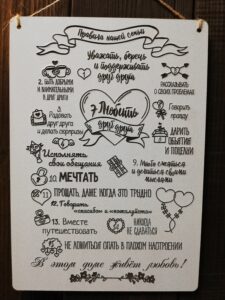 Правила нашей семьи
Уважать, беречь
и поддерживать
друг друга
2. БЫТЬ ДОБРЫМИ
И ВНИМАТЕЛЬНЫМИ
ДРУГ К ДРУГУ
РАССКАЗЫВАТЬ
О СВОИХ ПРОБЛЕМАХ
3.
Радовать
друг друга
и делать сюрпризы
7 Любить
друг друга
Говорить
правду
ДАРИТЬ
ОБЪЯТИЯ
И ПОЦЕЛУИ
Исполнять
свои обещания
9.
и делиться своими
мыслями
10. МЕЧТАТЬ
11 ПРОЩАТЬ, ДАЖЕ КОГДА ЭТО ТРУДНО
12. Говорить
«спасибо» и «пожалуйста»
13. Вместе
путешествовать
14
НИКОГДА
НЕ СДАВАТЬСЯ
15 НЕ ЛОЖИТЬСЯ СПАТЬ В ПЛОХОМ НАСТРОЕНИИ
В этом доме живёт любовь!